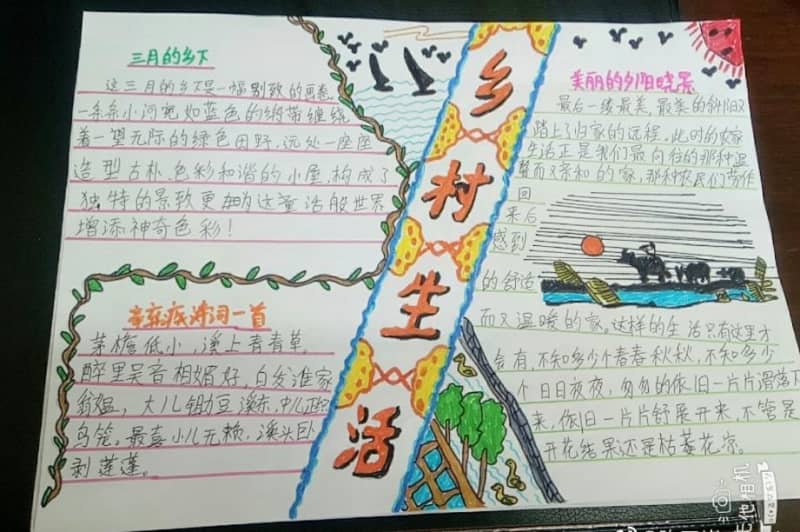 乡村生活
三月的乡下
这三月的乡下是一幅别致的画卷
一条条小河宛如蓝色的绸带缠绕
着一望无际的绿色田野,远处一座座
造型古朴,色彩和谐的小屋,构成了
独特的景致更为这童话般世界
增添神奇色彩!
辛弃疾诗词一首
茅檐低小,溪上青青草,
醉里吴音相媚好,白发谁家
翁媪,大儿锄豆溪东,中儿正织
鸡笼。最喜小儿无赖,溪头卧
剥莲蓬。
美丽的夕阳晓景
最后一缕最美,最美的斜阳又
踏上了归家的远程,此时的农家
生活正是我们最向往的那种温
馨而又亲和的家,那种农民们劳作
回
来后
感到
的舒适
而又温暖的家,这样的生活只有这里才
会有,不知多少个春春秋秋,不知多少
个日日夜夜,匆匆的依旧一片片滑落下
来,依旧一片片舒展开来,不管是
开花结果还是枯萎花凉。